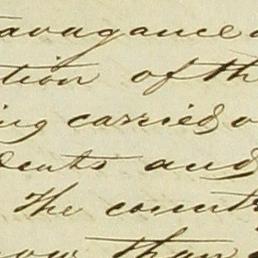 avagance
tion of th
ing carried o
dents and
The countr
now than